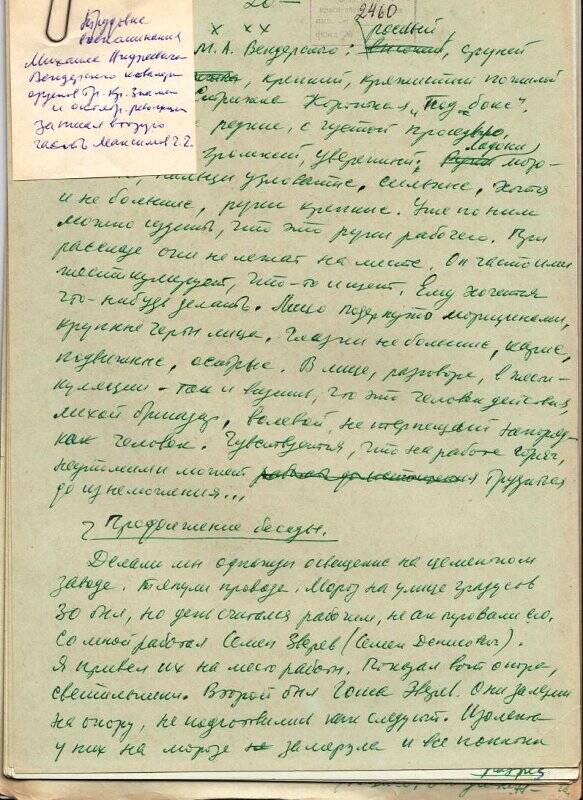 Трудовые
воспоминания
Михаила Андреевича
Вендерского кавалера
орденов Тр. Кр. Знамени
и октябр. революции
записал вторую
часть Максимов Г.Г.
20-
2460
х хх рослый,
М.А. Вендерского: грузный
крепкий, кряжистый пожилой
Стрижка Короткая „Под бокс".
редкие, с густой проседью,
громкий, уверенный, ладони
пальцы узловатые, сильные, хотя
и не большие, руки крепкие. Уже по ним
можно судить, что это руки рабочего. При
рассказе они не лежат на месте. Он часто ими
жестикулирует, что-то ищет. Ему хочется
что-нибудь делать. Лицо подернуто морщинами,
крупные черты лица. Глазки не большие, карие,
подвижные, острые. В лице, разговоре, в жести-
куляции - так и видишь, что это человек действия,
лихой бригадир, волевой, не терпящий
человек. Чувствуется, что на работе горяч,
неутомим и может трудиться
до изнеможения...
Продолжение беседы.
Делали мы однажды освещение на цементном
заводе. Тянули провода. Мороз на улице градусов
30 был, но день считался рабочим, не актировали его.
Со мной работал Семен Зверев (Семен Денисович).
Я привел их на место работы. Показал вот опора,
светильники. Второй был Гоша Зверев. Они залезли
на опору, не подготовились как следует. Изолента
у них на морозе замерзла и все